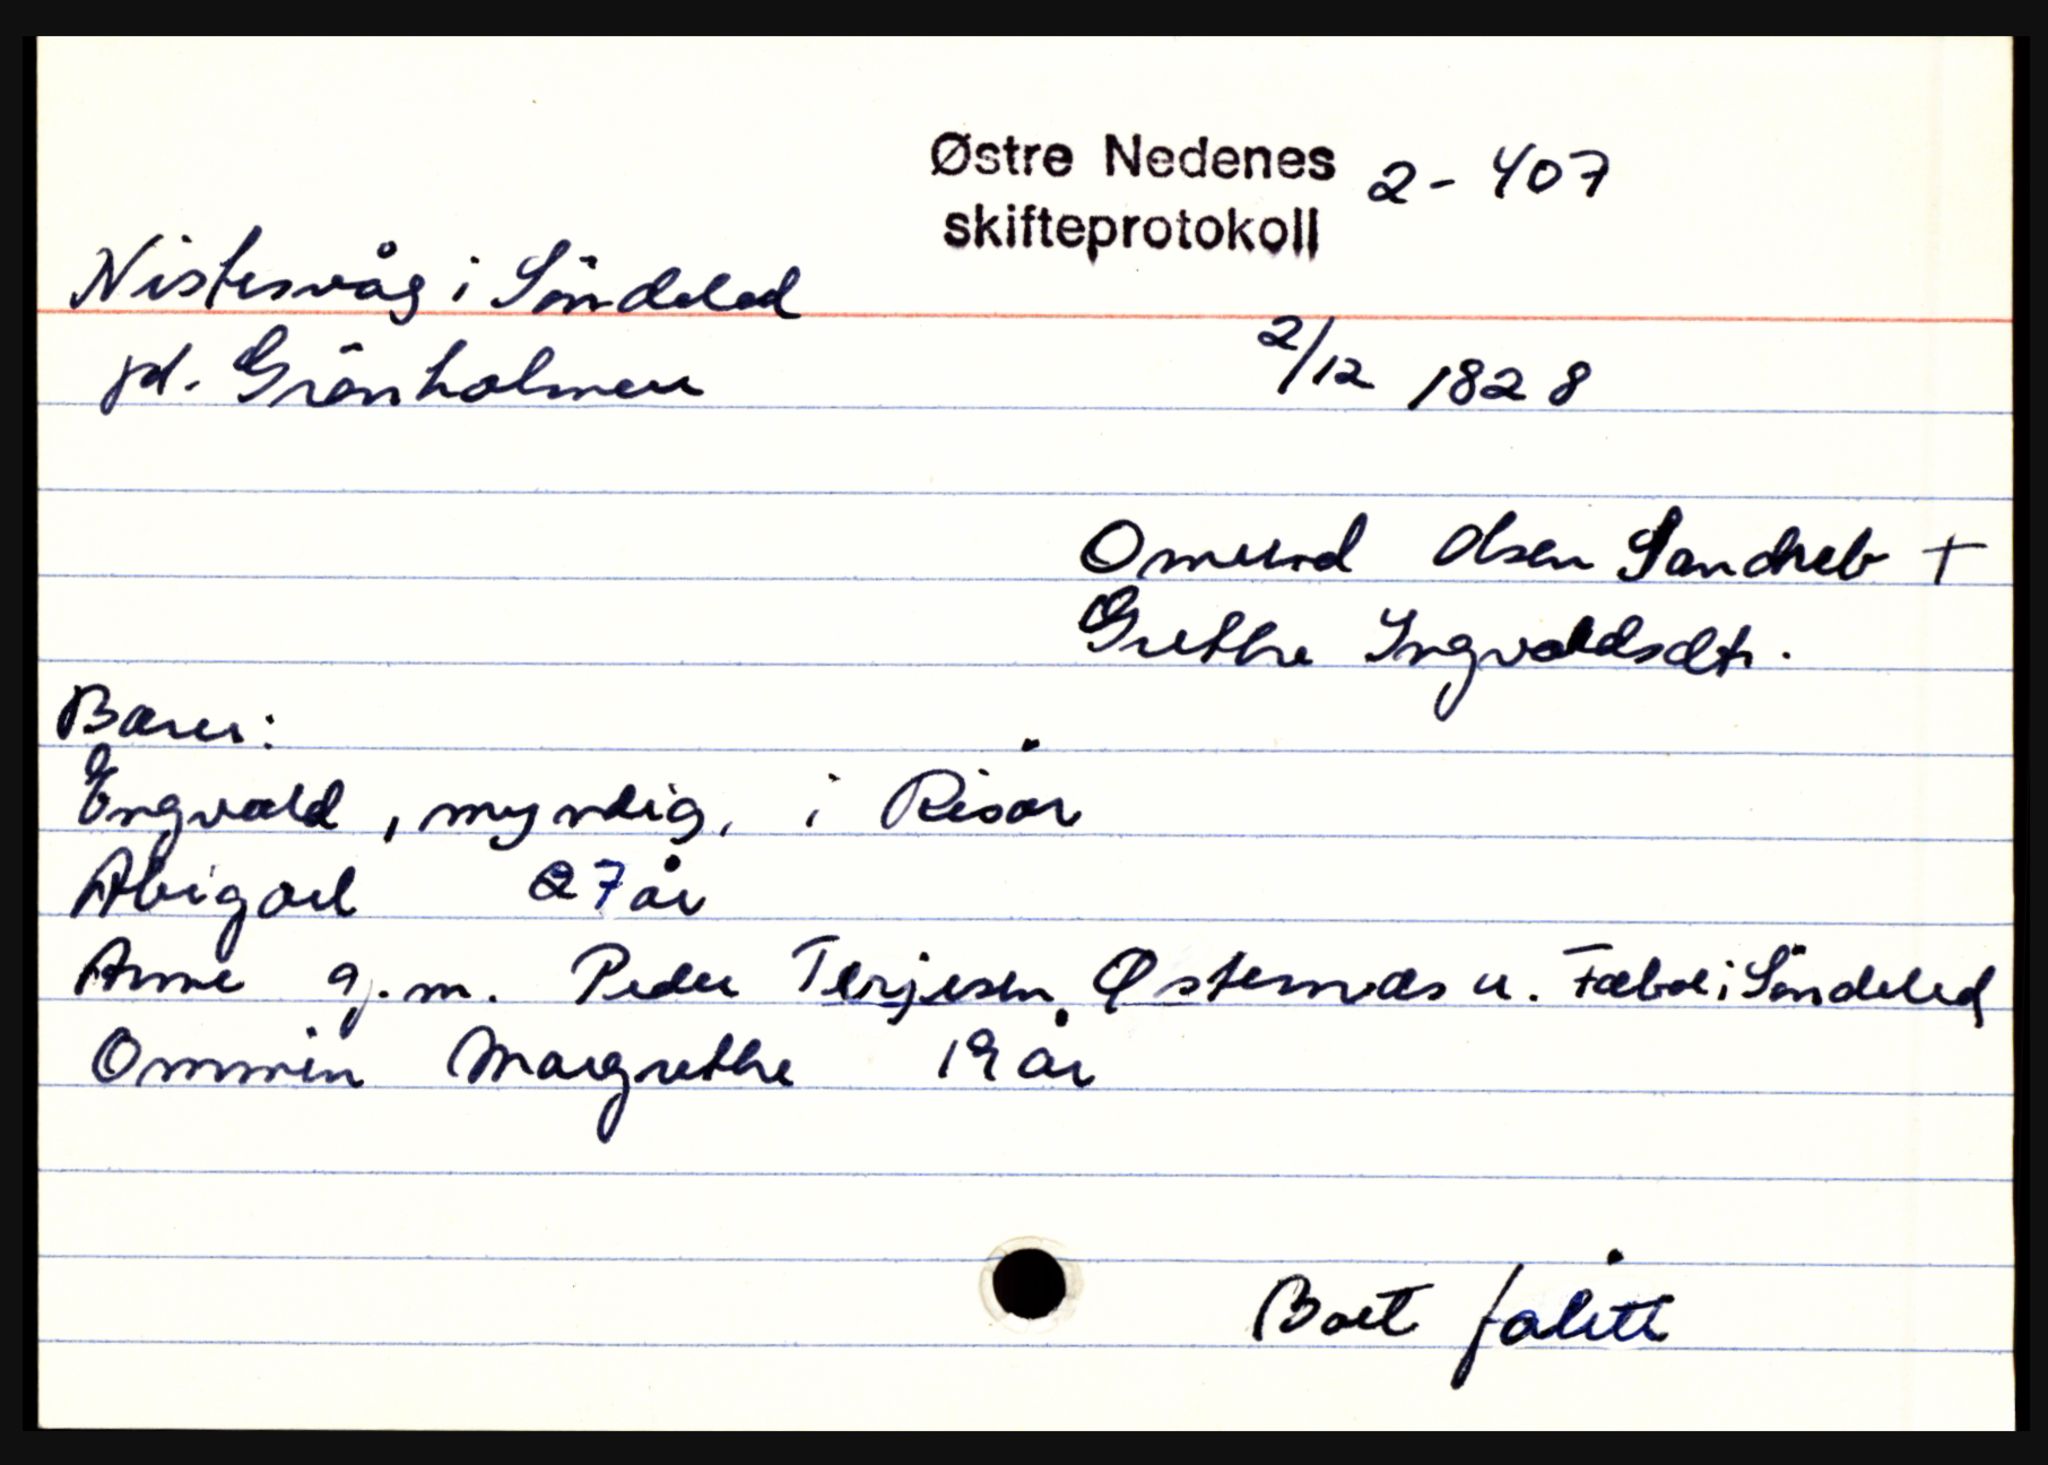 Østre Nedenes 2-407
skifteprotokoll
Nistesvåg i Söndeled
pl. Grönholmen 2/12 1828
Omund Olsen Sandneb +
Grethe Ingvaldsdtr.
Barn:
Engvald, myndig, i Risør
Abigael 27 år
Anne g.m. Peder Terjesen Østernæs u. Fæboe i Söndeled
Ommin Margrethe 19 år
Boet falitt